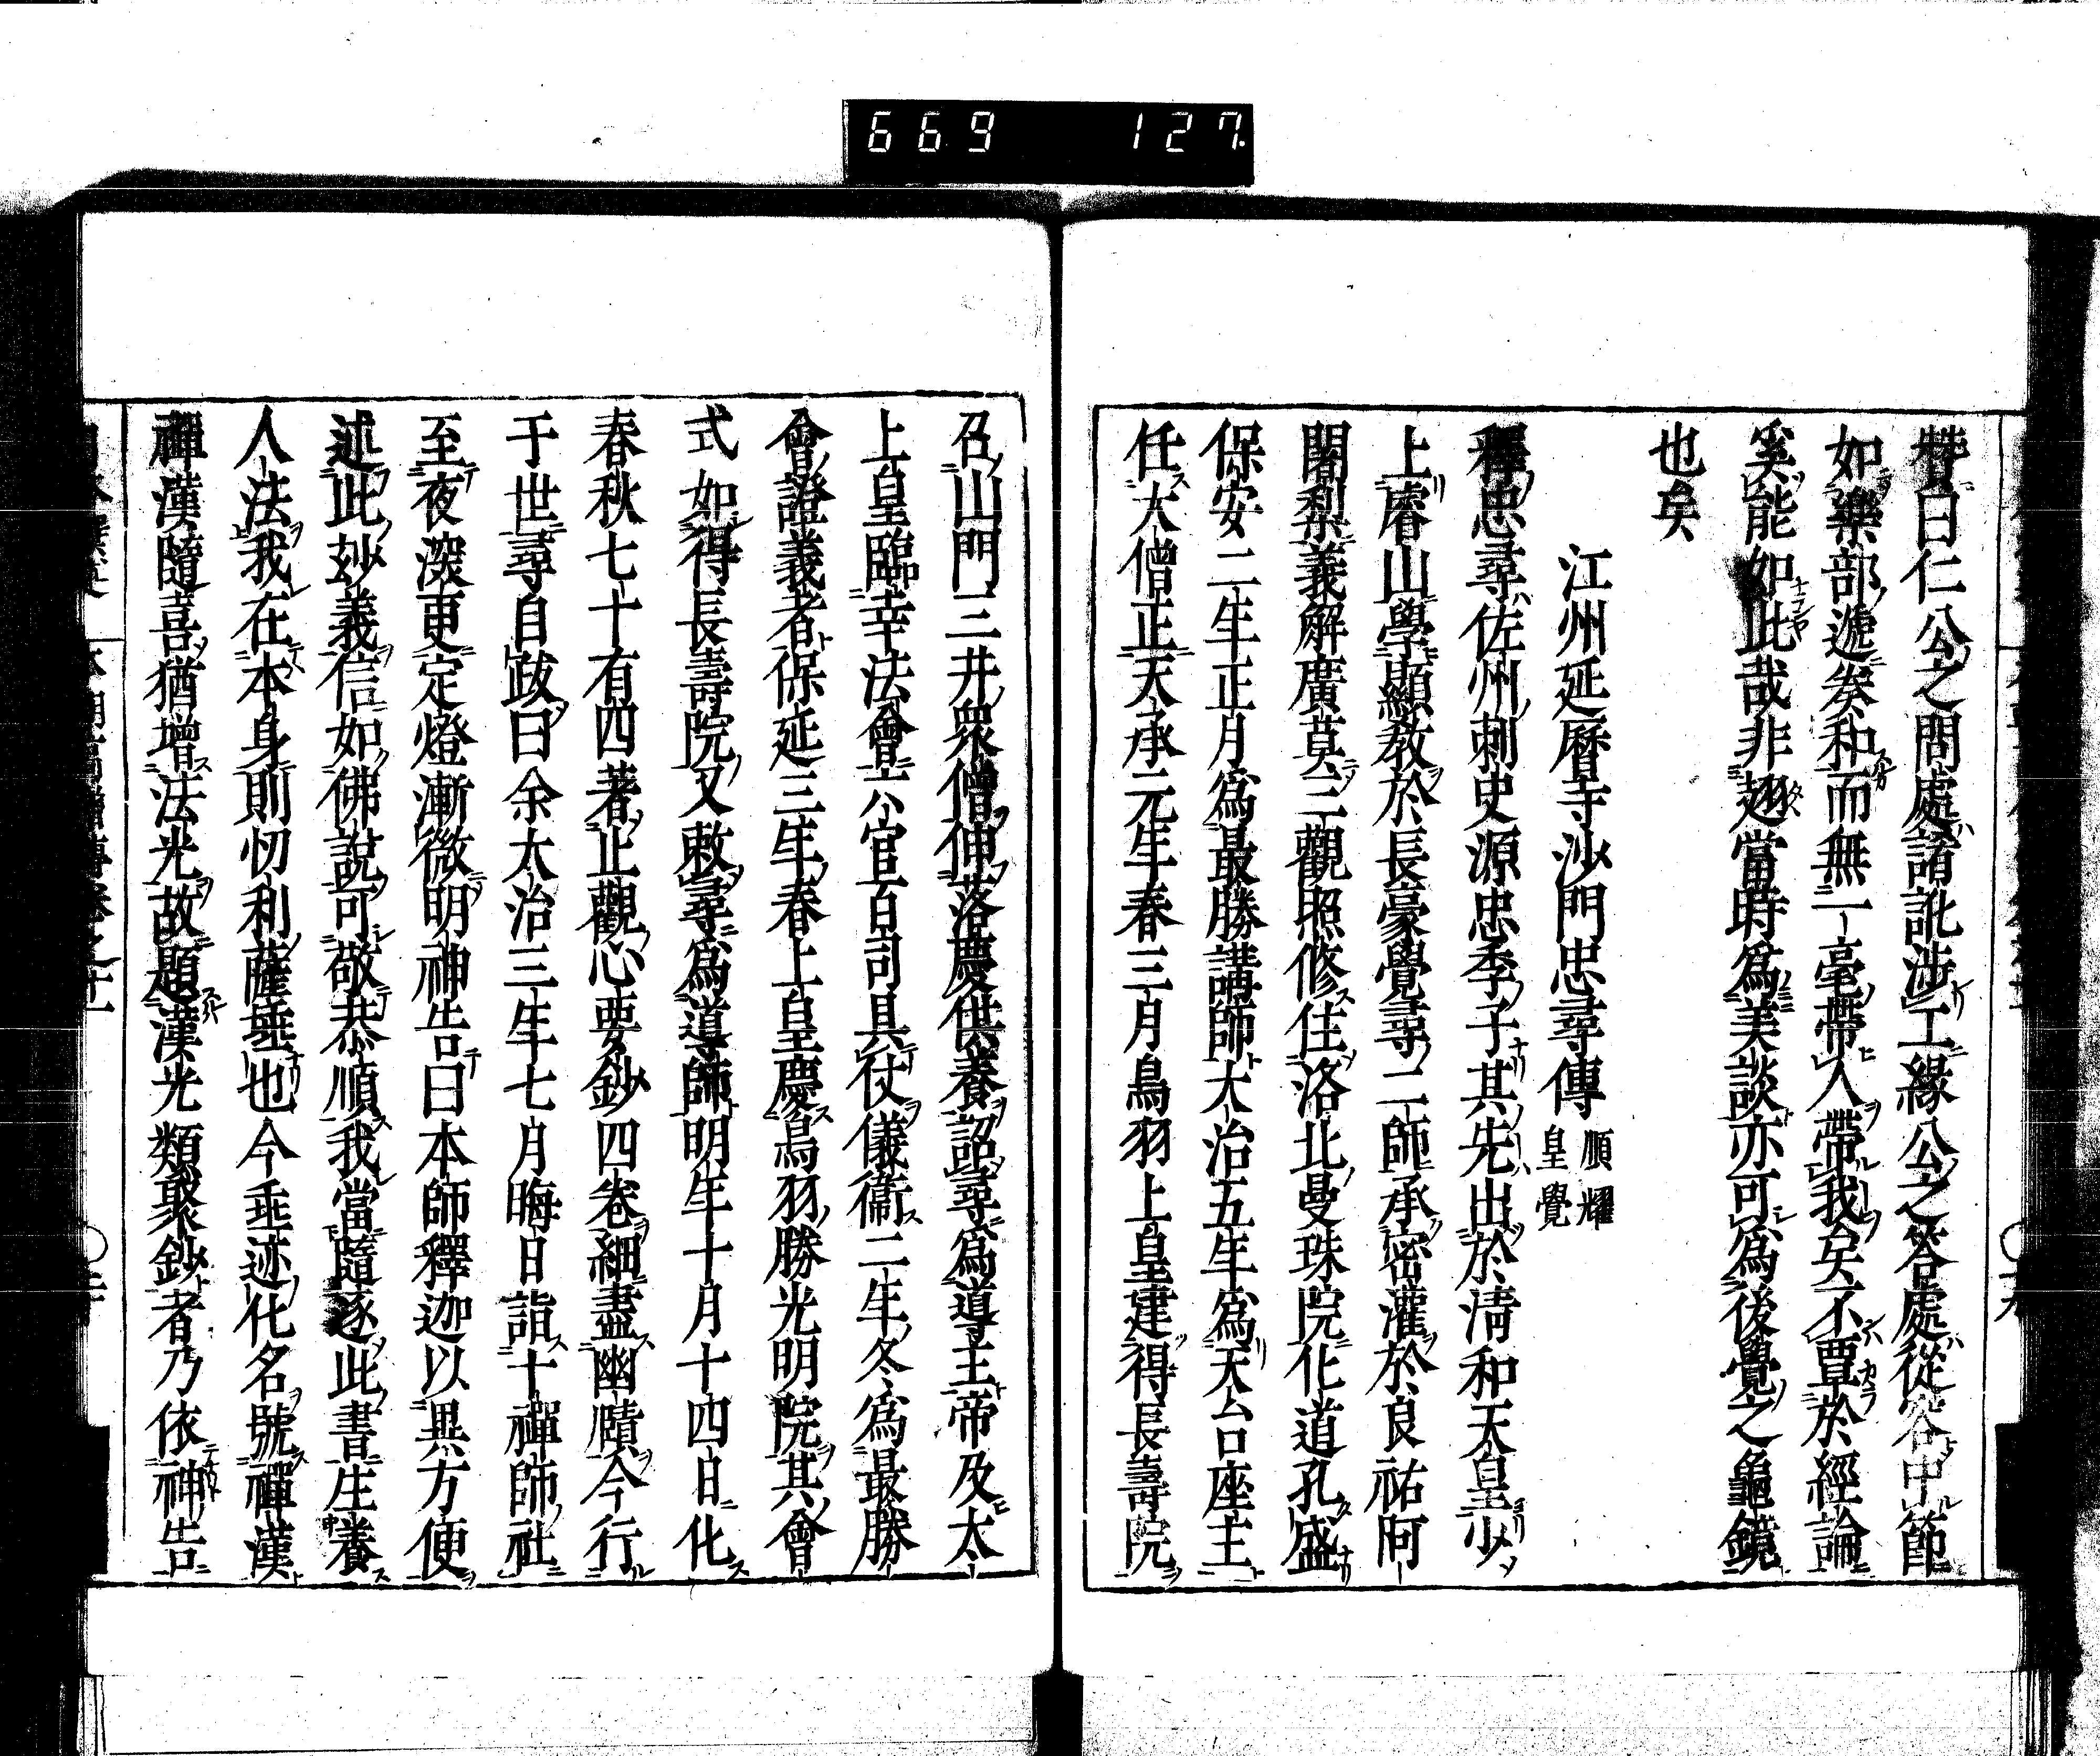 669 127
贊曰仁公之問處諸訛涉工緣公之答處從容中節
如樂部遞奏和而無一毫帶人帶我矣不覃於經論
奚能如此哉非翅當時爲美談亦可爲後覺之龜鏡
也矣
江州延曆寺沙門忠尋傳 順耀 皇覺
釋忠尋佐州刺史源忠季子其先出於清和天皇少
上睿山學顯教於長豪覺尋二師承密灌於良祐阿
闍梨義解廣莫三觀照修住洛北曼珠院化道孔盛
保安二年正月爲最勝講師大治五年爲天台座主
任大僧正天承元年春三月鳥羽上皇建得長壽院
召山門三井衆僧伸落慶供養詔尋爲導主帝及太
上皇臨幸法會六官百司具仗儀衞二年冬爲最勝
會證義者保延三年春上皇慶鳥羽勝光明院其會
式如得長壽院又敕尋爲導師明年十月十四日化
春秋七十有四著止觀心要鈔四卷細盡幽賾今行
于世尋自跋曰余大治三年七月晦日詣十禪師社
至夜深更定燈漸微明神告曰本師釋迦以異方便
述此妙義信如佛說可敬恭順我當隨逐此書生養
人法我在本身則忉利薩埵也今垂迹化名號禪漢
禪漢隨喜猶增法光故題漢光類聚鈔者乃依神告